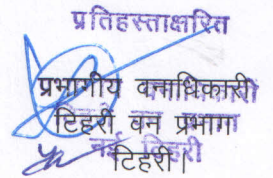 प्रतिहस्ताक्षरित
प्रभागीय वनाधिकारी
टिहरी वन प्रभाग
नई टिहरी
टिहरी।